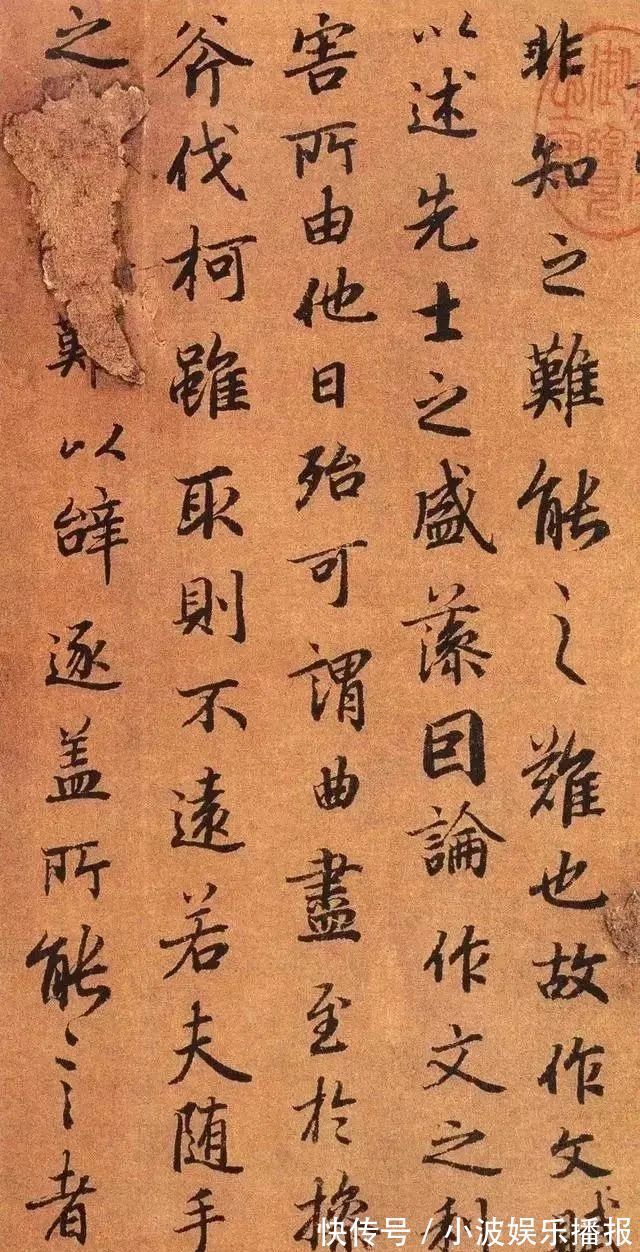 非知之難能之難也故作文賦
以述先士之盛藻囙論作文之利
害所由他日殆可謂曲盡至於操
斧伐柯雖取則不遠若夫随手
之以辝逐盖所能言者
快传号 / 小波娱乐播报